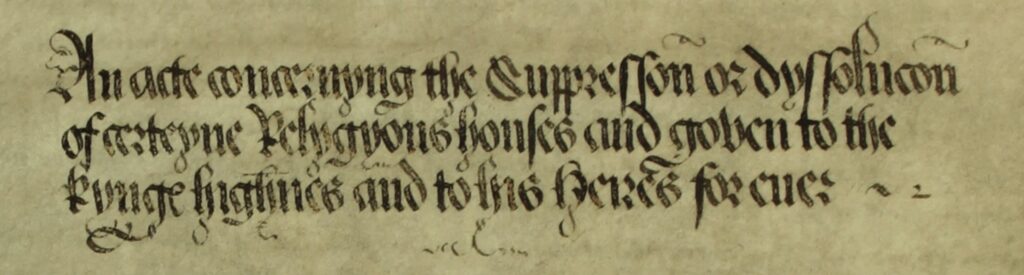 An acte concernyng the Suppresson or dyssolucon
of certeyne Relygyous houses and goven to the
Kynge highnes and to his Heires for ever